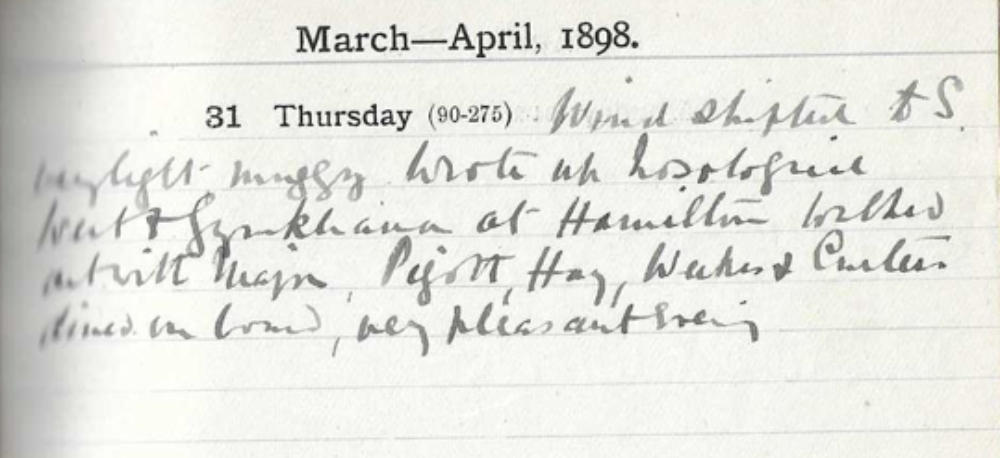 March—April, 1898.
31 Thursday (90-275) Wind shifted to S.
very light muggy Wrote up Nosological
Went to Gymkhana at Hamilton walked
out with Major, Pigott, Hay, Weekes &
dined on board, very pleasant Evening